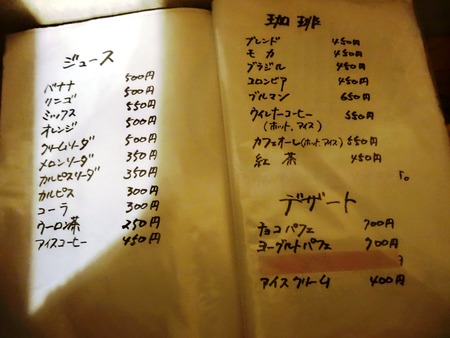 ジュース
バナナ 500円
リンゴ 500円
ミックス 550円
オレンジ 500円
クリームソーダ 500円
メロンソーダ 350円
カルピスソーダ 350円
カルピス 300円
コーラ 300円
ウーロン茶 250円
アイスコーヒー 450円
珈琲
ブレンド 450円
モカ 450円
ブラジル 450円
コロンビア 450円
ブルマン 650円
ウインナーコーヒー 550円
(ホット、アイス)
カフェオーレ(ホット、アイス) 550円
紅茶 450円
デザート
チョコパフェ 700円
ヨーグルトパフェ 700円
アイスクリーム 400円